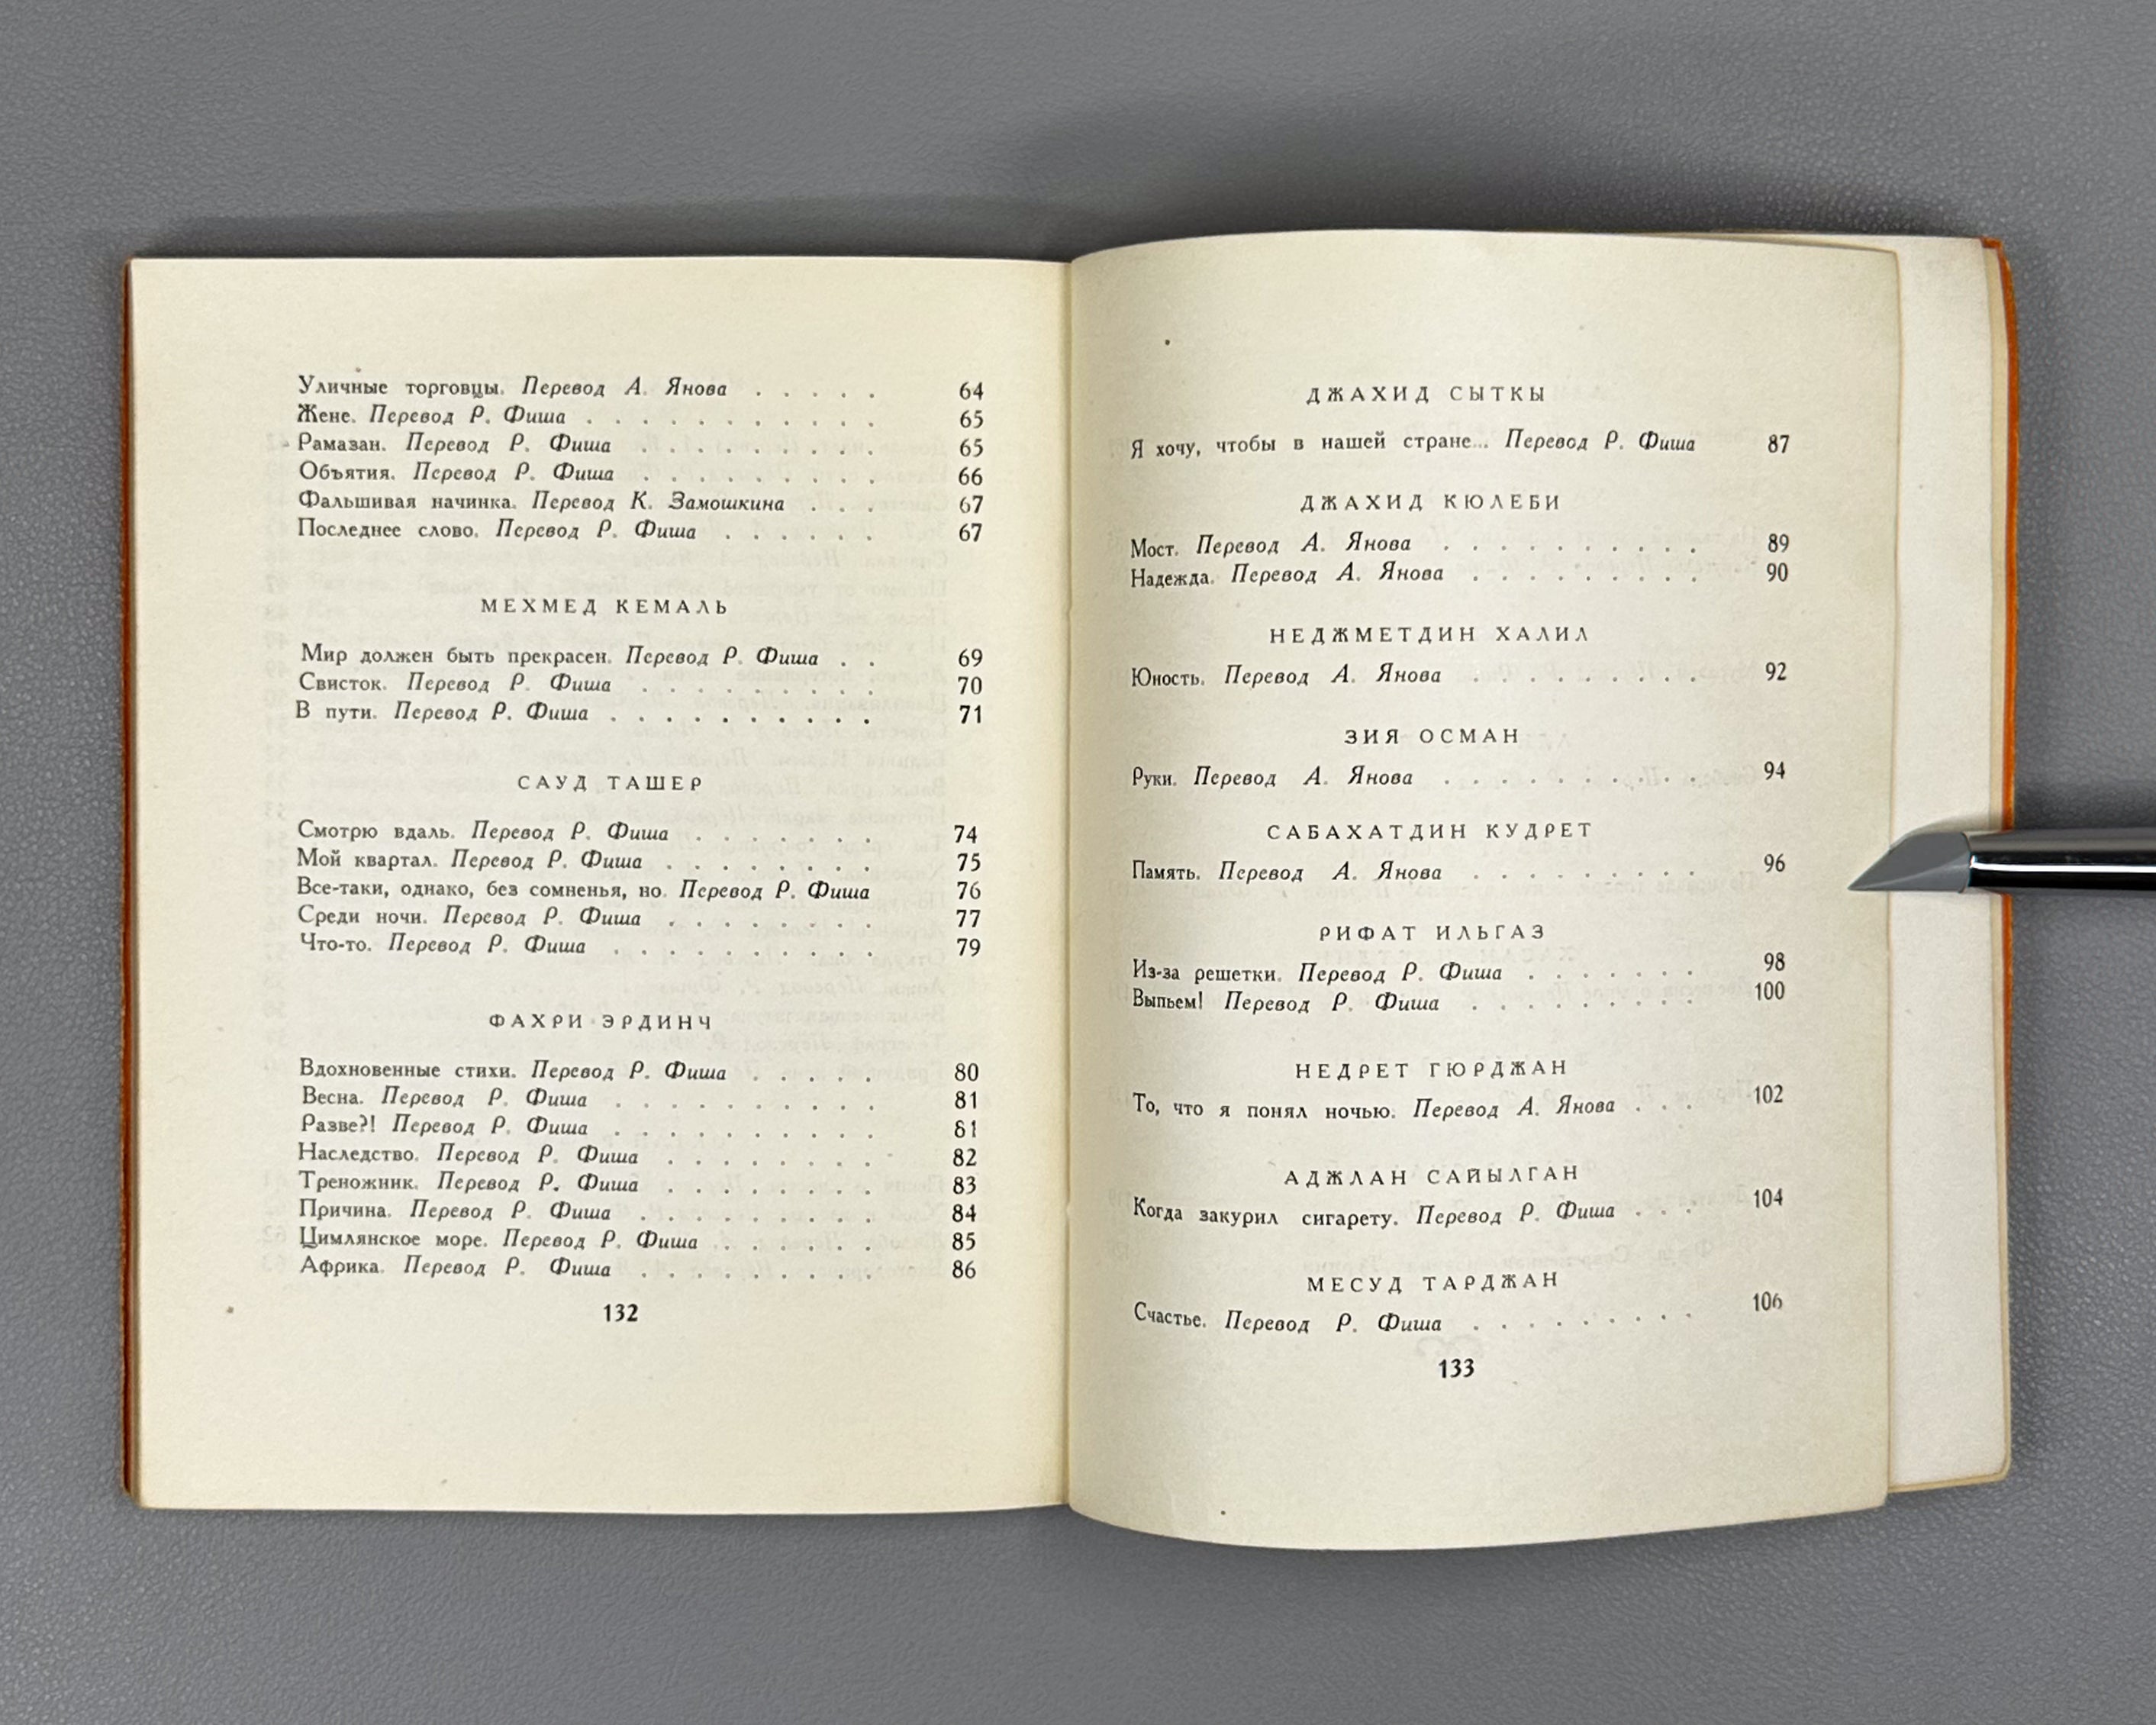 Уличные торговцы. Перевод А. Янова . . . . . 64
Жене. Перевод Р. Фиша . . . . . . . . . . . 65
Рамазан. Перевод Р. Фиша . . . . . . . . . 65
Объятия. Перевод Р. Фиша . . . . . . . . . 66
Фальшивая начинка. Перевод К. Замошкина . . . 67
Последнее слово. Перевод Р. Фиша . . . . . . 67
МЕХМЕД КЕМАЛЬ
Мир должен быть прекрасен. Перевод Р. Фиша . . 69
Свисток. Перевод Р. Фиша . . . . . . . . . 70
В пути. Перевод Р. Фиша . . . . . . . . . . 71
САУД ТАШЕР
Смотрю вдаль. Перевод Р. Фиша . . . . . . . 74
Мой квартал. Перевод Р. Фиша . . . . . . . . 75
Все-таки, однако, без сомненья, но. Перевод Р. Фиша 76
Среди ночи. Перевод Р. Фиша . . . . . . . . 77
Что-то. Перевод Р. Фиша . . . . . . . . . . 79
ФАХРИ ЭРДИНЧ
Вдохновенные стихи. Перевод Р. Фиша . . . . . 80
Весна. Перевод Р. Фиша . . . . . . . . . . 81
Разве?! Перевод Р. Фиша . . . . . . . . . . 81
Наследство. Перевод Р. Фиша . . . . . . . . 82
Треножник. Перевод Р. Фиша . . . . . . . . 83
Причина. Перевод Р. Фиша . . . . . . . . . 84
Цимлянское море. Перевод Р. Фиша . . . . . . 85
Африка. Перевод Р. Фиша . . . . . . . . . 86
132
ДЖАХИД СЫТКЫ
Я хочу, чтобы в нашей стране... Перевод Р. Фиша 87
ДЖАХИД КЮЛЕБИ
Мост. Перевод А. Янова . . . . . . . . . . 89
Надежда. Перевод А. Янова . . . . . . . . . 90
НЕДЖМЕТДИН ХАЛИЛ
Юность. Перевод А. Янова . . . . . . . . . 92
ЗИЯ ОСМАН
Руки. Перевод А. Янова . . . . . . . . . . 94
САБАХАТДИН КУДРЕТ
Память. Перевод А. Янова . . . . . . . . . 96
РИФАТ ИЛЬГАЗ
Из-за решетки. Перевод Р. Фиша . . . . . . . 98
Выпьем! Перевод Р. Фиша . . . . . . . . . 100
НЕДРЕТ ГЮРДЖАН
То, что я понял ночью. Перевод А. Янова . . . 102
АДЖЛАН САЙЫЛГАН
Когда закурил сигарету. Перевод Р. Фиша . . . 104
МЕСУД ТАРДЖАН
Счастье. Перевод Р. Фиша . . . . . . . . . 106
133